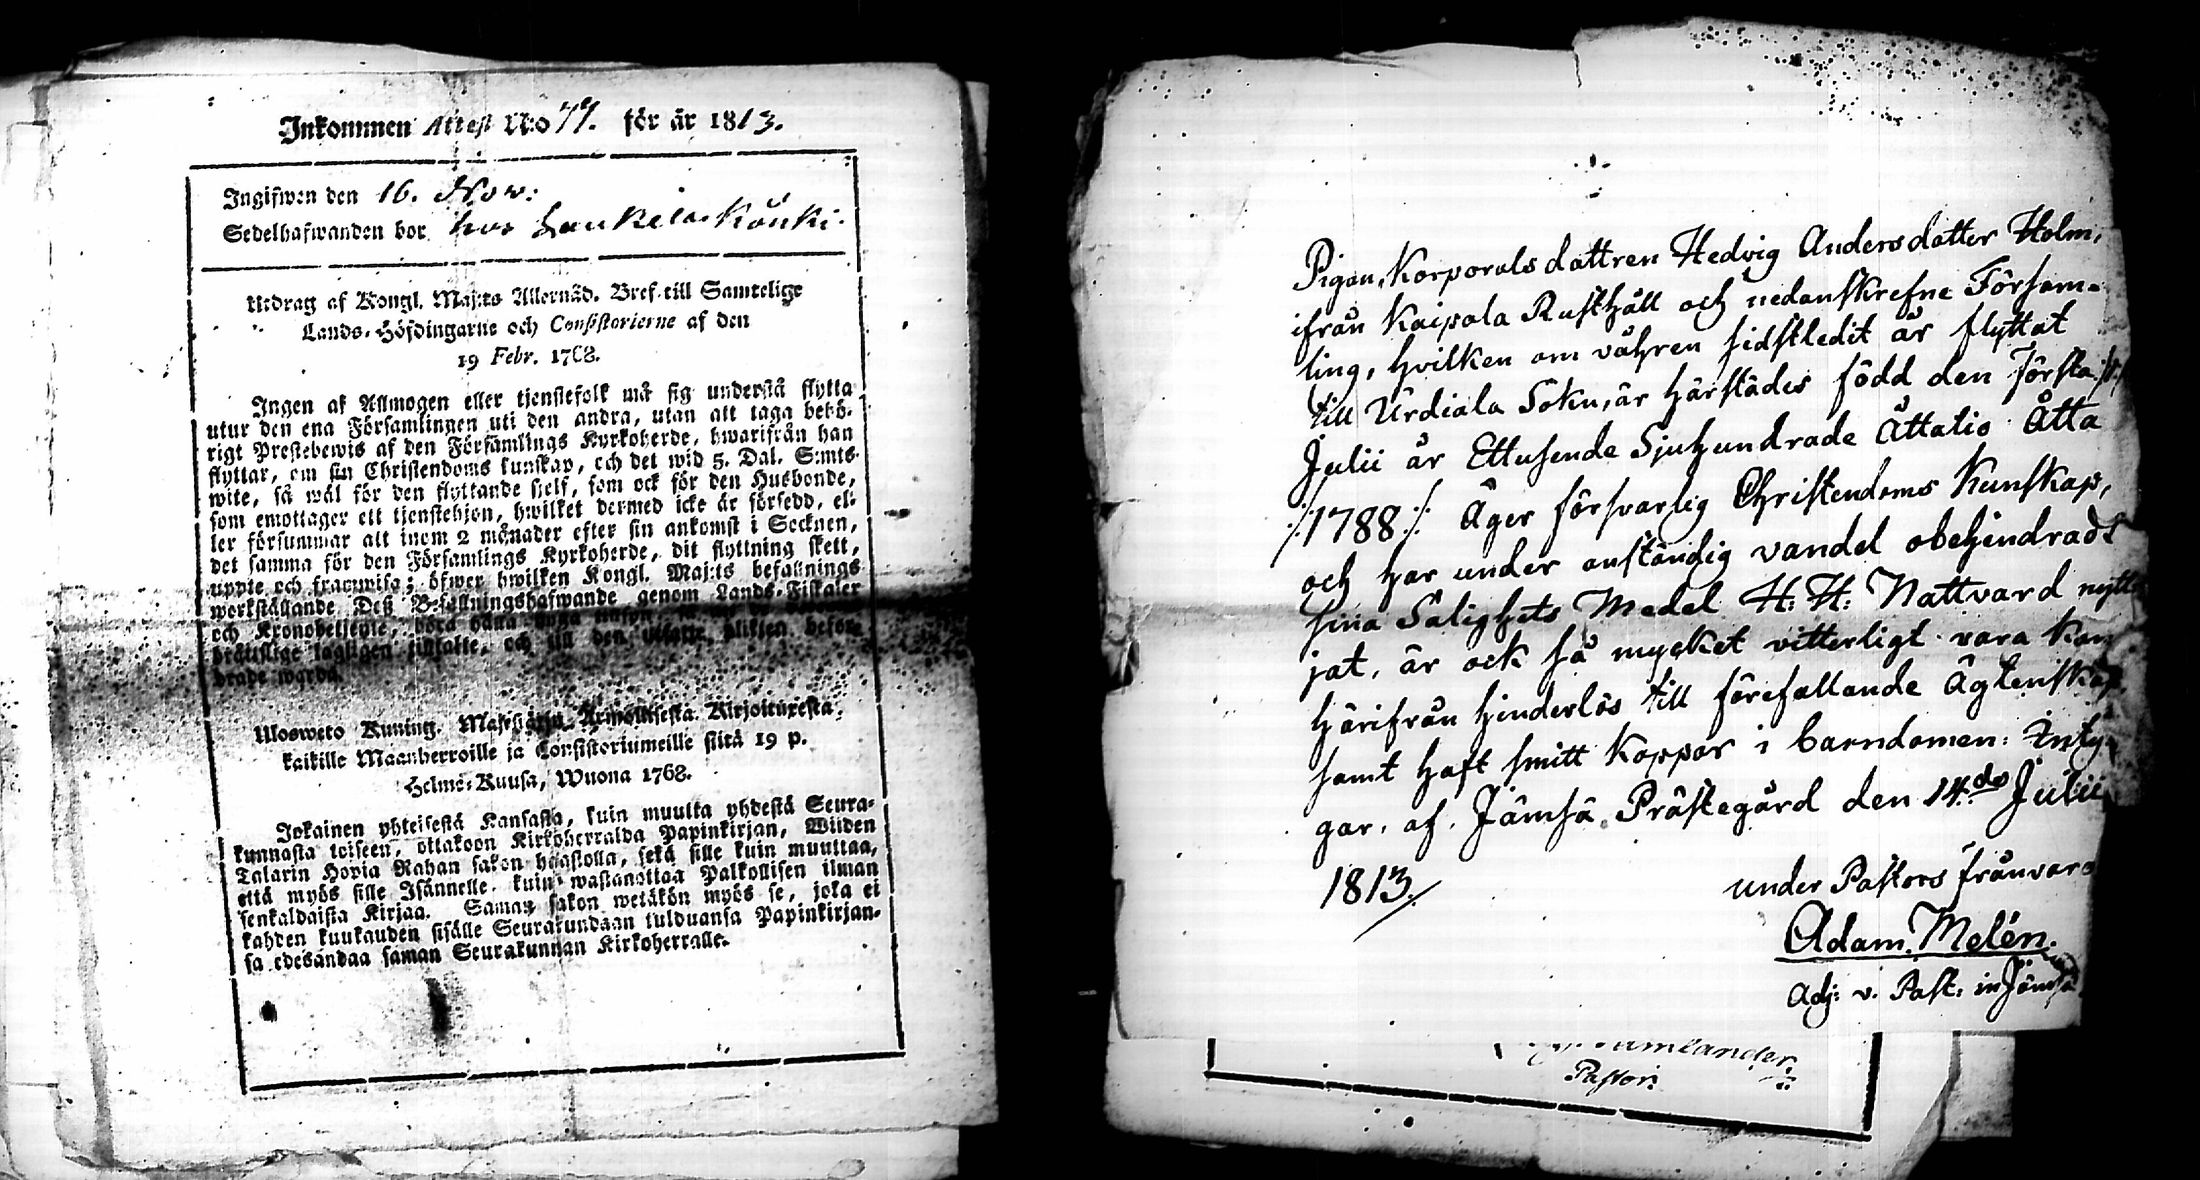 Inkommen Attest N:o 77. för år 1813.
Ingifwen den 16. Nov:
Sedelhafwanden bor hos Laukela Könki.
Utdrag af Kongl. Maj:ts Allernåd. Bref till Samtelige
Lands-Höfdingarne och Consistorierne af den
19 Febr. 1768.
Ingen af Allmogen eller tjenstefolk må sig understå flytta
utur den ena Församlingen uti den andra, utan att taga behö-
rigt Prestebewis af den Församlings Kyrkoherde, hwarifrån han
flyttar, om sin Christendoms kunskap, och det wid 5. Dal. S:mts
wite, så wäl för den flyttande sielf, som ock för den Husbonde,
som emottager ett tjenstehjon, hwilket dermed icke är försedd, el-
ler försummar att inom 2 månader efter sin ankomst i Socknen,
det samma för den Församlings Kyrkoherde, dit flyttning skett,
uppte och framwisa; öfwer hwilken Kongl. Maj:ts befallnings
werkställande Deß Befallningshafwande genom Lands-Fiskaler
och Kronobetjente, böra hålla
lagligen tilltalte, och till den plikten befor-
drade warda.
Uloswetto Kuning. Majestätin Armollisesta Kirjoituxesta,
kaikille Maanherroille ja Consistoriumeille siitä 19 p.
Helme-Kuusa, Wuona 1768.
Jokainen yhteisestä Kansasta, kuin muutta yhdestä Seura-
kunnasta toiseen, ottakoon Kirkoherralda Papinkirjan, Wiiden
Talarin Hopia Rahan sakon haastolla, sekä sille kuin muuttaa,
että myös sille Isännelle, kuin wastanottaa Palkollisen ilman
senkaldaista Kirjaa. Saman sakon wetäkön myös se, joka ei
kahden kuukauden sisälle Seurakundaan tulduansa Papinkirjan-
sa edesandaa saman Seurakunnan Kirkoherralle.
Pigan, Korporals dottren Hedvig Andersdotter Holm,
ifrån Kaipola Rusthåll och nedanskrefne Försam-
ling, hvilken om våhren sidstledit är flyttat
till Urdiala Sokn, är härstädes född den Första /1/
Julii år Ettusende Sjuhundrade Åttatio Åtta
/:1788:/ Äger försvarlig Christendoms Kunskap,
och har under anständig vandel obehindradt
sina Salighets Medel H: H: Nattvard nytt-
jat, är ock så mycket vitterligt vara kan
härifrån hinderlös till förefallande Ägtenskap,
samt haft smitt Koppor i barndomen: Inty-
gar, af Jämsä Prästegård den 14:de Julii
1813.
under Pastors frånvaro
Adam Melén.
Adj: v. Past: in Jämsä
Pastor.